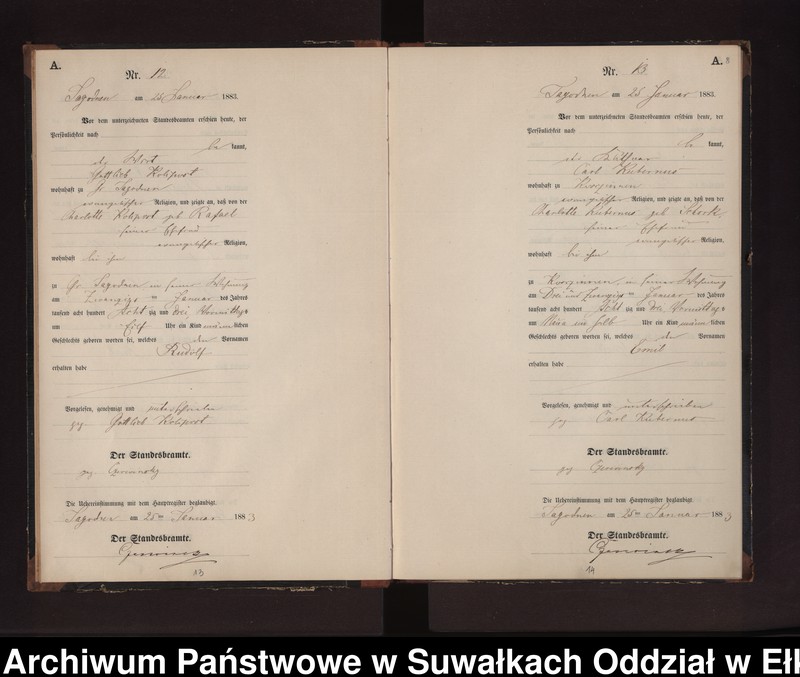 A.
Nr. 12.
am 25 Januar 1883.
Vor dem unterzeichneten Standesbeamten erschien heute, der
Persönlichkeit nach
be kannt,
der Wirt
Gottlieb
wohnhaft zu Gr.
evangelischer Religion, und zeigte an, daß von der
Charlotte geb.
seiner Ehefrau
evangelischer Religion,
wohnhaft bei ihm
zu Gr. in seiner Wohnung
am Zwanzigs ten Januar des Jahres
tausend acht hundert acht zig und drei Vormittags
um Elf Uhr ein Kind männlichen
Geschlechts geboren worden sei, welches den Vornamen
Rudolf
erhalten habe
Vorgelesen, genehmigt und unterschrieben
gez. Gottlieb
Der Standesbeamte.
gez.
Die Uebereinstimmung mit dem Hauptregister beglaubigt.
am 25ten Januar 1883
Der Standesbeamte.
13
A. 8
Nr. 13.
am 25 Januar 1883.
Vor dem unterzeichneten Standesbeamten erschien heute, der
Persönlichkeit nach
be kannt,
der
Carl
wohnhaft zu
evangelischer Religion, und zeigte an, daß von der
Charlotte geb.
seiner Ehefrau
evangelischer Religion,
wohnhaft bei ihm
zu in seiner Wohnung
am Drei und Zwanzigs ten Januar des Jahres
tausend acht hundert acht zig und drei Vormittags
um ein halb Uhr ein Kind männlichen
Geschlechts geboren worden sei, welches den Vornamen
erhalten habe
Vorgelesen, genehmigt und unterschrieben
gez. Carl
Der Standesbeamte.
gez.
Die Uebereinstimmung mit dem Hauptregister beglaubigt.
am 25ten Januar 1883
Der Standesbeamte.
14
Archiwum Państwowe w Suwałkach Oddział w Ełk